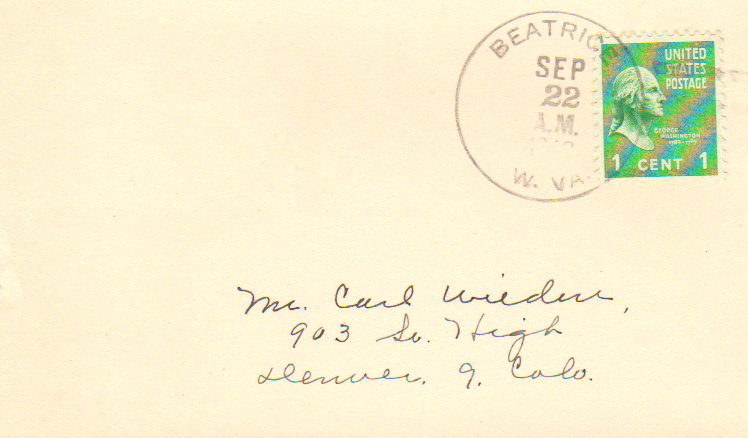 BEATRICE
SEP
22
A.M.
W. VA.
UNITED
STATES
POSTAGE
GEORGE
WASHINGTON
1 CENT 1
Mr. Carl
903 So. High
Denver, 9, Colo.